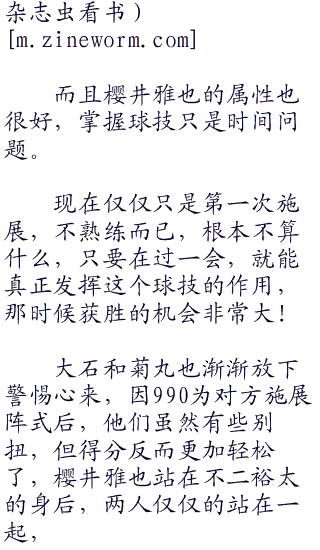 杂志虫看书）
[m.zineworm.com]
而且樱井雅也的属性也
很好，掌握球技只是时间问
题。
现在仅仅只是第一次施
展，不熟练而已，根本不算
什么，只要在过一会，就能
真正发挥这个球技的作用，
那时候获胜的机会非常大！
大石和菊丸也渐渐放下
警惕心来，因990为对方施展
阵式后，他们虽然有些别
扭，但得分反而更加轻松
了，樱井雅也站在不二裕太
的身后，两人仅仅的站在一
起，